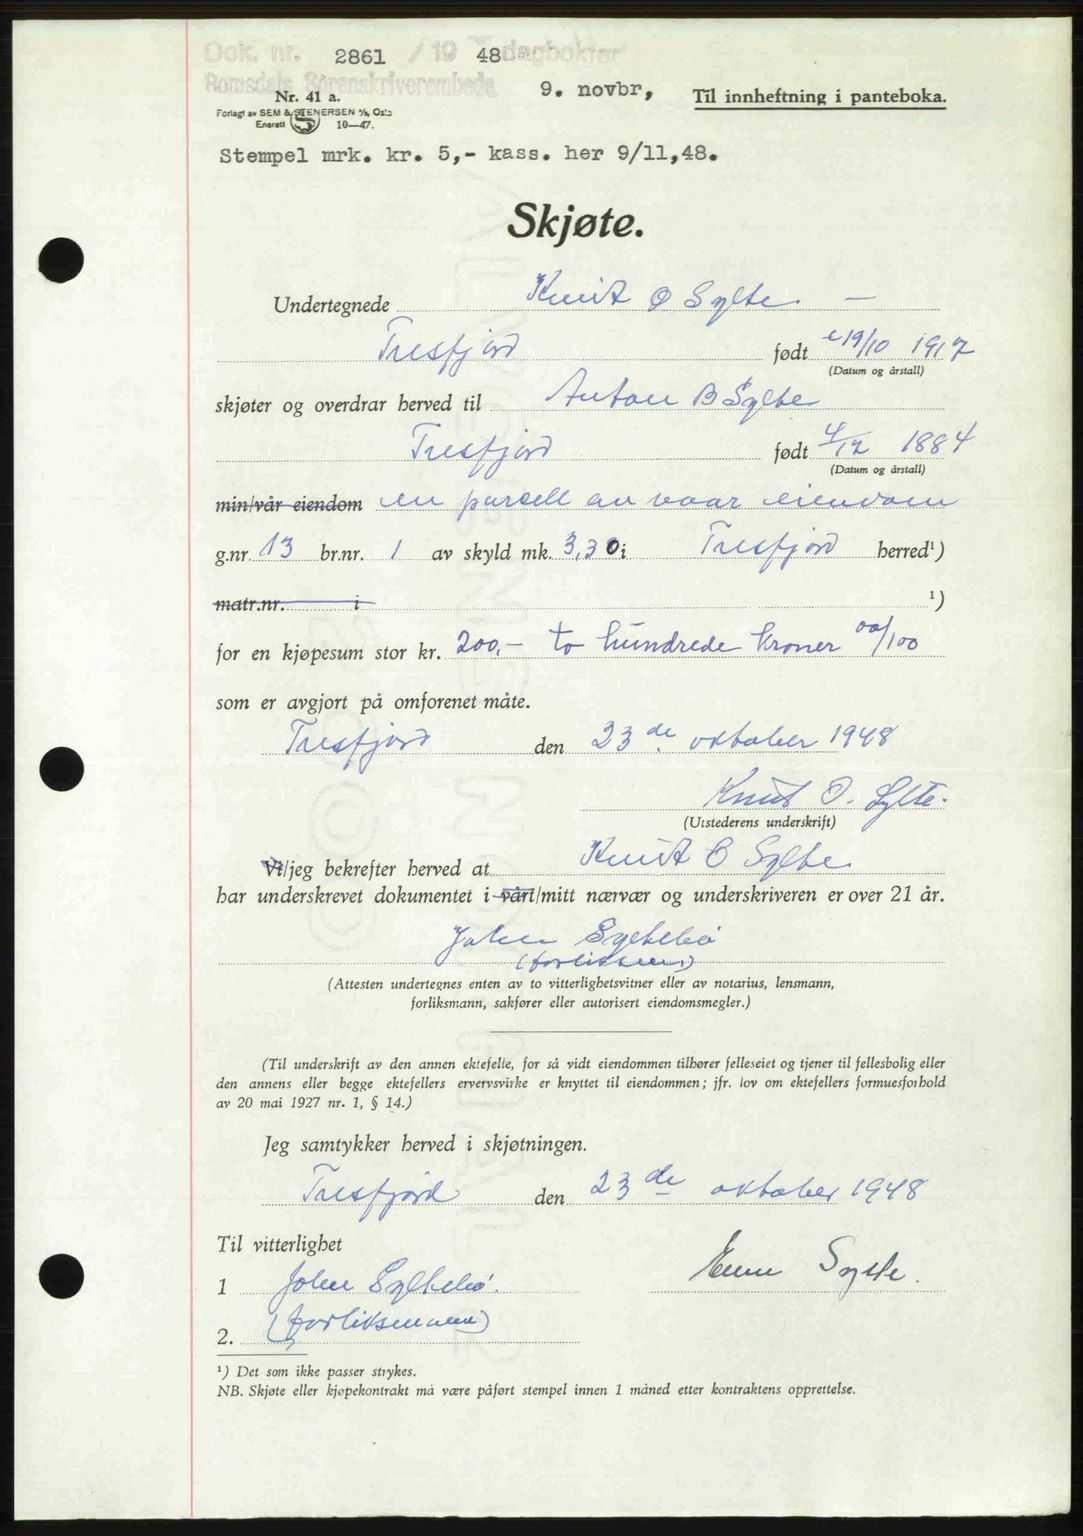 Dok. nr. 2861 / 19 48 dagbokført
Romsdals Sorenskriverembede
9. novbr,
Til innheftning i panteboka.
Nr. 41 a.
Forlagt av SEM & STENERSEN A/S, Oslo
Enerett S 10—47.
Stempel mrk. kr. 5,- kass. her 9/11,48.
Skjøte.
Undertegnede Knut O Sylte —
Tresfjord født 19/10 1917
(Datum og årstall)
skjøter og overdrar herved til Anton B Sylte
Tresfjord født 4/12 1884
(Datum og årstall)
min/vår eiendom en parsell av vaar eiendom
g.nr. 13 br.nr. 1 av skyld mk. 3,30 i Tresfjord herred¹)
matr.nr. i ¹)
for en kjøpesum stor kr. 200,- to hundrede kroner 00/100
som er avgjort på omforenet måte.
Tresfjord den 23de oktober 1948
Knut O. Sylte.
(Utstederens underskrift)
Vi/jeg bekrefter herved at Knut O Sylte
har underskrevet dokumentet i vårt/mitt nærvær og underskriveren er over 21 år.
Johan Syltebø
(forliksmann)
(Attesten undertegnes enten av to vitterlighetsvitner eller av notarius, lensmann,
forliksmann, sakfører eller autorisert eiendomsmegler.)
(Til underskrift av den annen ektefelle, for så vidt eiendommen tilhører felleseiet og tjener til fellesbolig eller
den annens eller begge ektefellers ervervsvirke er knyttet til eiendommen; jfr. lov om ektefellers formuesforhold
av 20 mai 1927 nr. 1, § 14.)
Jeg samtykker herved i skjøtningen.
Tresfjord den 23de oktober 1948
Til vitterlighet
1 Johan Syltebø. Sylte.
(forliksmann)
2.
¹) Det som ikke passer strykes.
NB. Skjøte eller kjøpekontrakt må være påført stempel innen 1 måned etter kontraktens opprettelse.